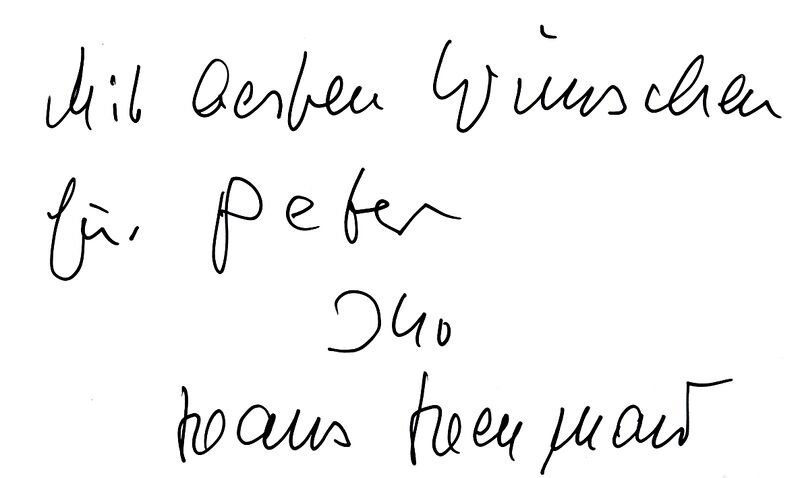 Mit besten Wünschen
für Peter
Ihr
Hans